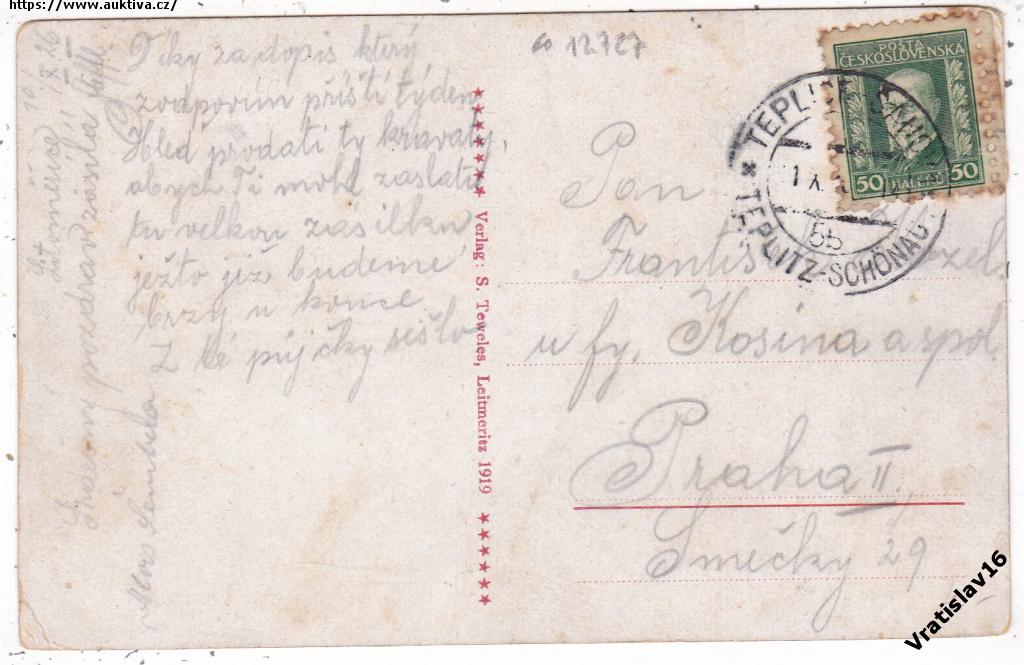 https://www.auktiva.cz/
12727
Díky za dopis který
zodpovím příští týden
Hleď prodati ty kravaty,
abych Ti mohl zaslati
tu velkou zásilku
ježto již budeme
brzy u konce.
Z té půjčky sešlo
Litoměřice 10/X 26
Srdečný pozdrav zasílá
Verlag: S. Teweles, Leitmeritz 1919
POŠTA
ČESKOSLOVENSKÁ
50 HALÉŘŮ 50
TEPLICE
TEPLITZ-SCHÖNAU
5b
Pan
Frant
u fy. Kosina a spol.
Praha II.
Smečky 29
Vratislav16